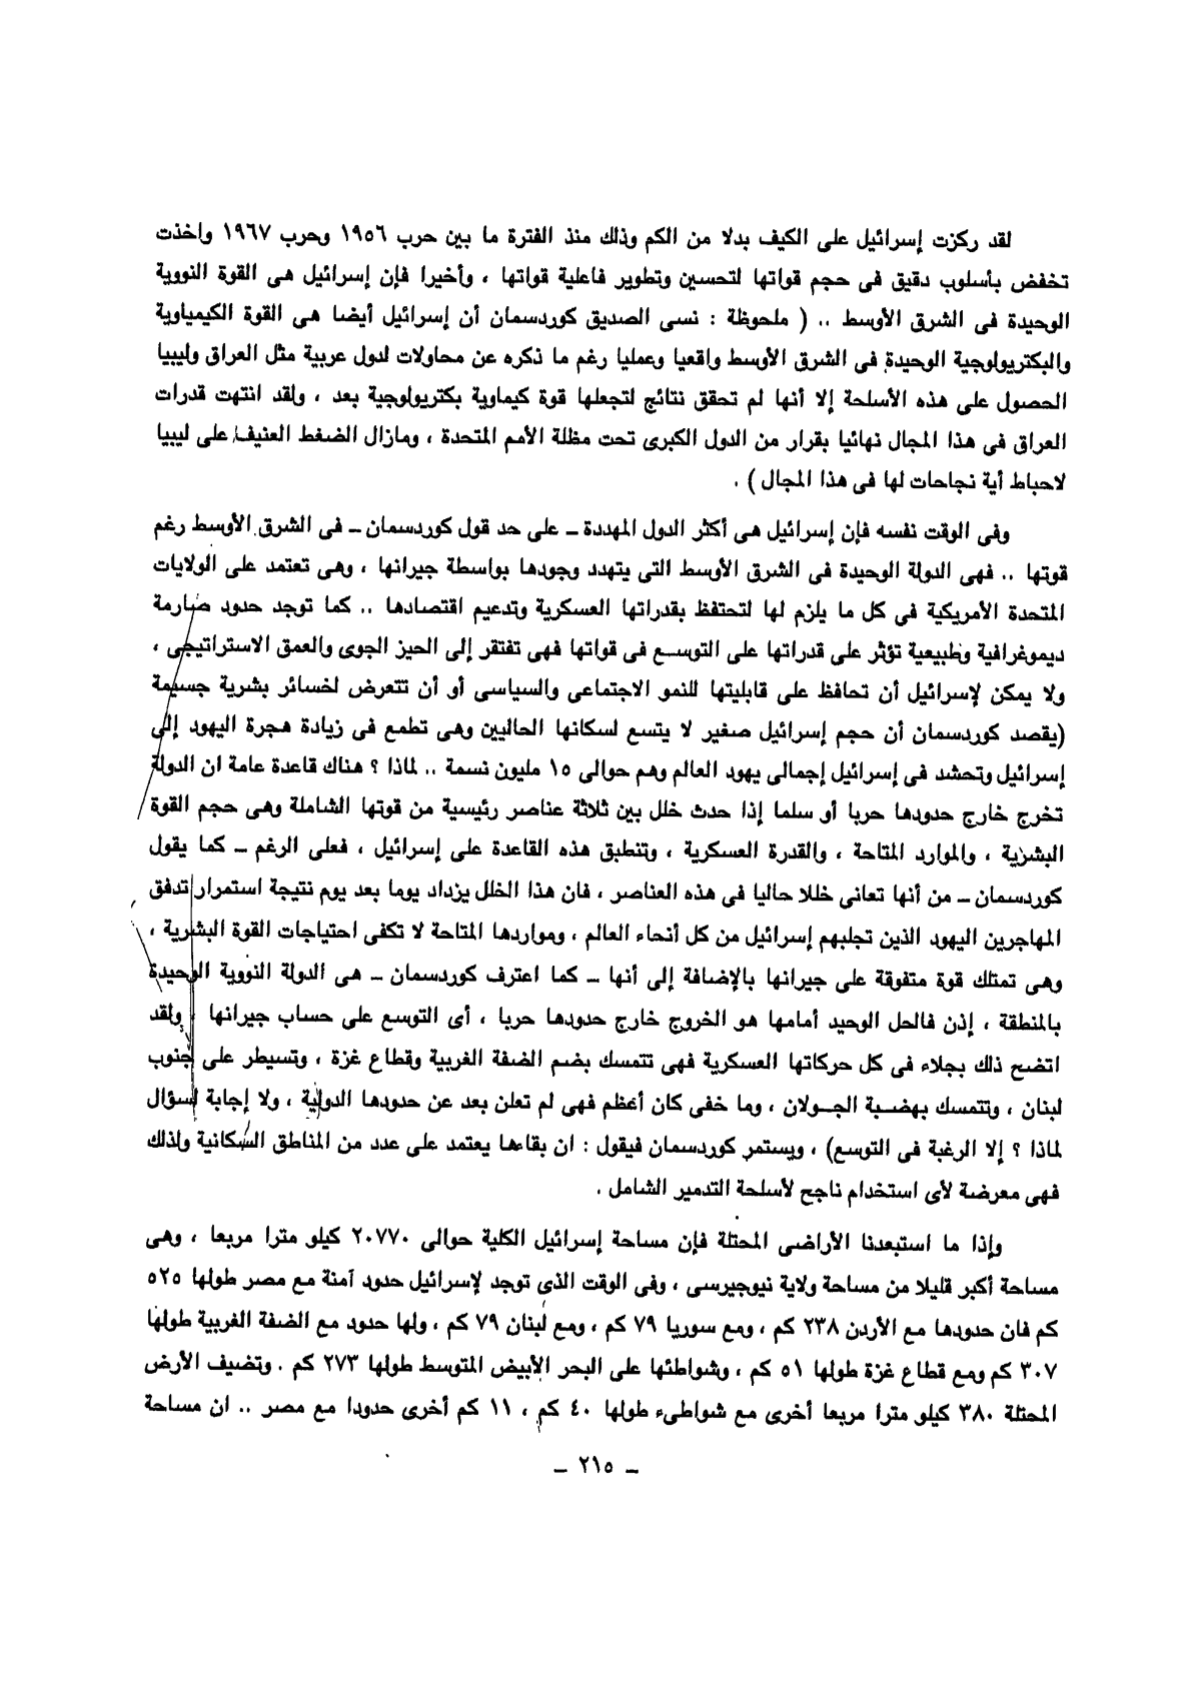 لقد ركزت إسرائيل على الكيف بدلا من الكم وذلك منذ الفترة ما بين حرب ١٩٥٦ وحرب ١٩٦٧ واخذت
تخفض بأسلوب دقيق فى حجم قواتها لتحسين وتطوير فاعلية قواتها ، وأخيرا فإن إسرائيل هى القوة النووية
الوحيدة فى الشرق الأوسط .. ( ملحوظة : نسى الصديق كوردسمان أن إسرائيل أيضا هى القوة الكيمياوية
والبكتريولوجية الوحيدة فى الشرق الأوسط واقعيا وعمليا رغم ما ذكره عن محاولات لدول عربية مثل العراق وليبيا
الحصول على هذه الأسلحة إلا أنها لم تحقق نتائج لتجعلها قوة كيماوية بكتريولوجية بعد ، ولقد انتهت قدرات
العراق فى هذا المجال نهائيا بقرار من الدول الكبرى تحت مظلة الأمم المتحدة ، ومازال الضغط العنيف على ليبيا
لاحباط أية نجاحات لها فى هذا المجال ) .
وفى الوقت نفسه فإن إسرائيل هى أكثر الدول المهددة ــ على حد قول كوردسمان ــ فى الشرق الأوسط رغم
قوتها .. فهى الدولة الوحيدة فى الشرق الأوسط التى يتهدد وجودها بواسطة جيرانها ، وهى تعتمد على الولايات
المتحدة الأمريكية فى كل ما يلزم لها لتحتفظ بقدراتها العسكرية وتدعيم اقتصادها .. كما توجد حدود صارمة
ديموغرافية وطبيعية تؤثر على قدراتها على التوسع فى قواتها فهى تفتقر إلى الحيز الجوى والعمق الاستراتيجى ،
ولا يمكن لإسرائيل أن تحافظ على قابليتها للنمو الاجتماعى والسياسى أو أن تتعرض لخسائر بشرية جسيمة
(يقصد كوردسمان أن حجم إسرائيل صغير لا يتسع لسكانها الحاليين وهى تطمع فى زيادة هجرة اليهود إلى
إسرائيل وتحشد فى إسرائيل إجمالى يهود العالم وهم حوالى ١٥ مليون نسمة .. لماذا ؟ هناك قاعدة عامة ان الدولة
تخرج خارج حدودها حربا أو سلما إذا حدث خلل بين ثلاثة عناصر رئيسية من قوتها الشاملة وهى حجم القوة
البشرية ، والموارد المتاحة ، والقدرة العسكرية ، وتنطبق هذه القاعدة على إسرائيل ، فعلى الرغم ــ كما يقول
كوردسمان ــ من أنها تعانى خللا حاليا فى هذه العناصر ، فان هذا الخلل يزداد يوما بعد يوم نتيجة استمرار تدفق
المهاجرين اليهود الذين تجلبهم إسرائيل من كل أنحاء العالم ، ومواردها المتاحة لا تكفى احتياجات القوة البشرية ،
وهى تمتلك قوة متفوقة على جيرانها بالإضافة إلى أنها ــ كما اعترف كوردسمان ــ هى الدولة النووية الوحيدة
بالمنطقة ، إذن فالحل الوحيد أمامها هو الخروج خارج حدودها حربا ، أى التوسع على حساب جيرانها ، ولقد
اتضح ذلك بجلاء فى كل حركاتها العسكرية فهى تتمسك بضم الضفة الغربية وقطاع غزة ، وتسيطر على جنوب
لبنان ، وتتمسك بهضبة الجولان ، وما خفى كان أعظم فهى لم تعلن بعد عن حدودها الدولية ، ولا إجابة لسؤال
لماذا ؟ إلا الرغبة فى التوسع) ، ويستمر كوردسمان فيقول : ان بقاءها يعتمد على عدد من المناطق السكانية ولذلك
فهى معرضة لأى استخدام ناجح لأسلحة التدمير الشامل .
وإذا ما استبعدنا الأراضى المحتلة فإن مساحة إسرائيل الكلية حوالى ٢٠٧٧٠ كيلو مترا مربعا ، وهى
مساحة أكبر قليلا من مساحة ولاية نيوجيرسى ، وفى الوقت الذى توجد لإسرائيل حدود آمنة مع مصر طولها ٥٢٥
كم فان حدودها مع الأردن ٢٣٨ كم ، ومع سوريا ٧٩ كم ، ومع لبنان ٧٩ كم ، ولها حدود مع الضفة الغربية طولها
٣٠٧ كم ومع قطاع غزة طولها ٥١ كم ، وشواطئها على البحر الأبيض المتوسط طولها ٢٧٣ كم . وتضيف الأرض
المحتلة ٣٨٠ كيلو مترا مربعا أخرى مع شواطىء طولها ٤٠ كم ، ١١ كم أخرى حدودا مع مصر .. ان مساحة
ــ ٢١٥ ــ